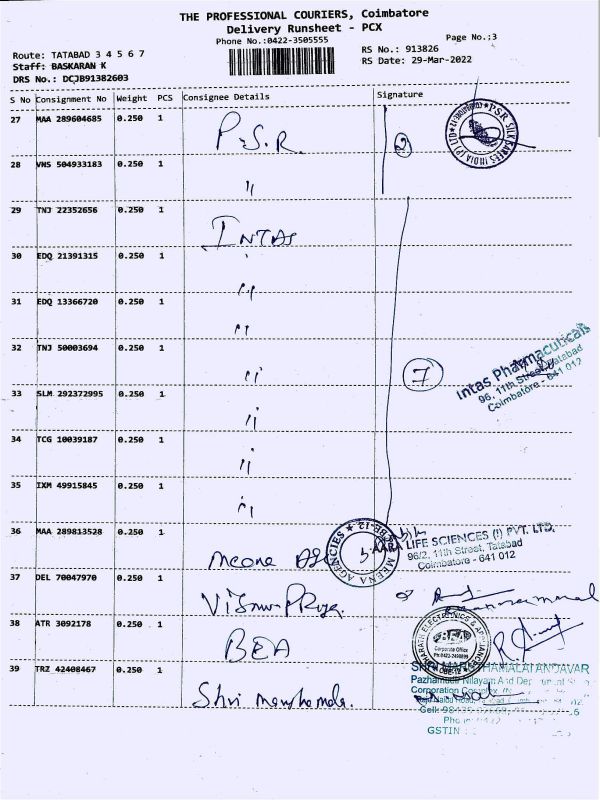 THE PROFESSIONAL COURIERS, Coimbatore
Delivery Runsheet - PCX
Phone No.:0422-3505555
Page No.:3
Route: TATABAD 3 4 5 6 7
RS No.: 913826
Staff: BASKARAN K
RS Date: 29-Mar-2022
DRS No.: DCJB91382603
S No Consignment No Weight PCS Consignee Details Signature
27 MAA 289604685 0.250 1 P.S.R. 2
PSR SILK SAREES INDIA (P) LTD
28 VNS 504933183 0.250 1 "
29 TNJ 22352656 0.250 1 INTAS
30 EDQ 21391315 0.250 1 "
31 EDQ 13366720 0.250 1 "
32 TNJ 50003694 0.250 1 " 7
Intas Pharmaceuticals
96, 11th Street, Tatabad
Coimbatore - 641 012
33 SLM 292372995 0.250 1 "
34 TCG 10039187 0.250 1 "
35 IXM 49915845 0.250 1 "
36 MAA 289813528 0.250 1 Meena
MEENA AGENCIES CBE-12
LIFE SCIENCES (I) PVT. LTD.
96/2, 11th Street, Tatabad
Coimbatore - 641 012
37 DEL 70047970 0.250 1
38 ATR 3092178 0.250 1 BEA
ELECTRONICS &
Corporate Office
39 TRZ 42408467 0.250 1 Shri
SHRI
Nilayam And
Corporation Complex
Cell:
GSTIN :